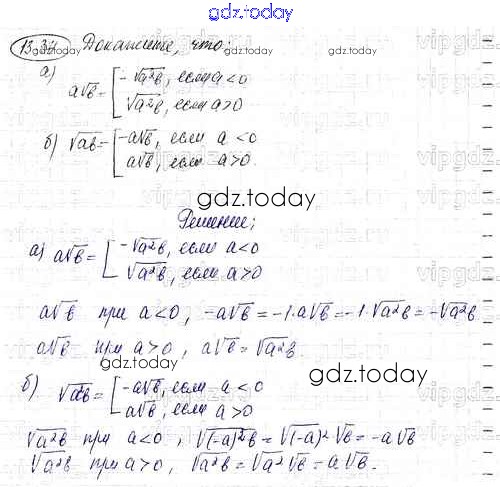 gdz.today
13.37 Докажите, что:
а) a√b = [ -√a²b, если a<0
√a²b, если a>0
б) √ab = [ -a√b, если a<0
a√b, если a>0.
gdz.today
Решение;
а) a√b = [ -√a²b, если a<0
√a²b, если a>0
a√b при a<0, -a√b = -1·a√b = -1·√a²b = -√a²b
a√b при a>0, a√b = √a²b
gdz.today
б) √a²b = [ -a√b, если a<0
a√b, если a>0
√a²b при a<0, √(-a)²b = √(-a)² √b = -a√b
√a²b при a>0, √a²b = √a² √b = a√b.
gdz.today